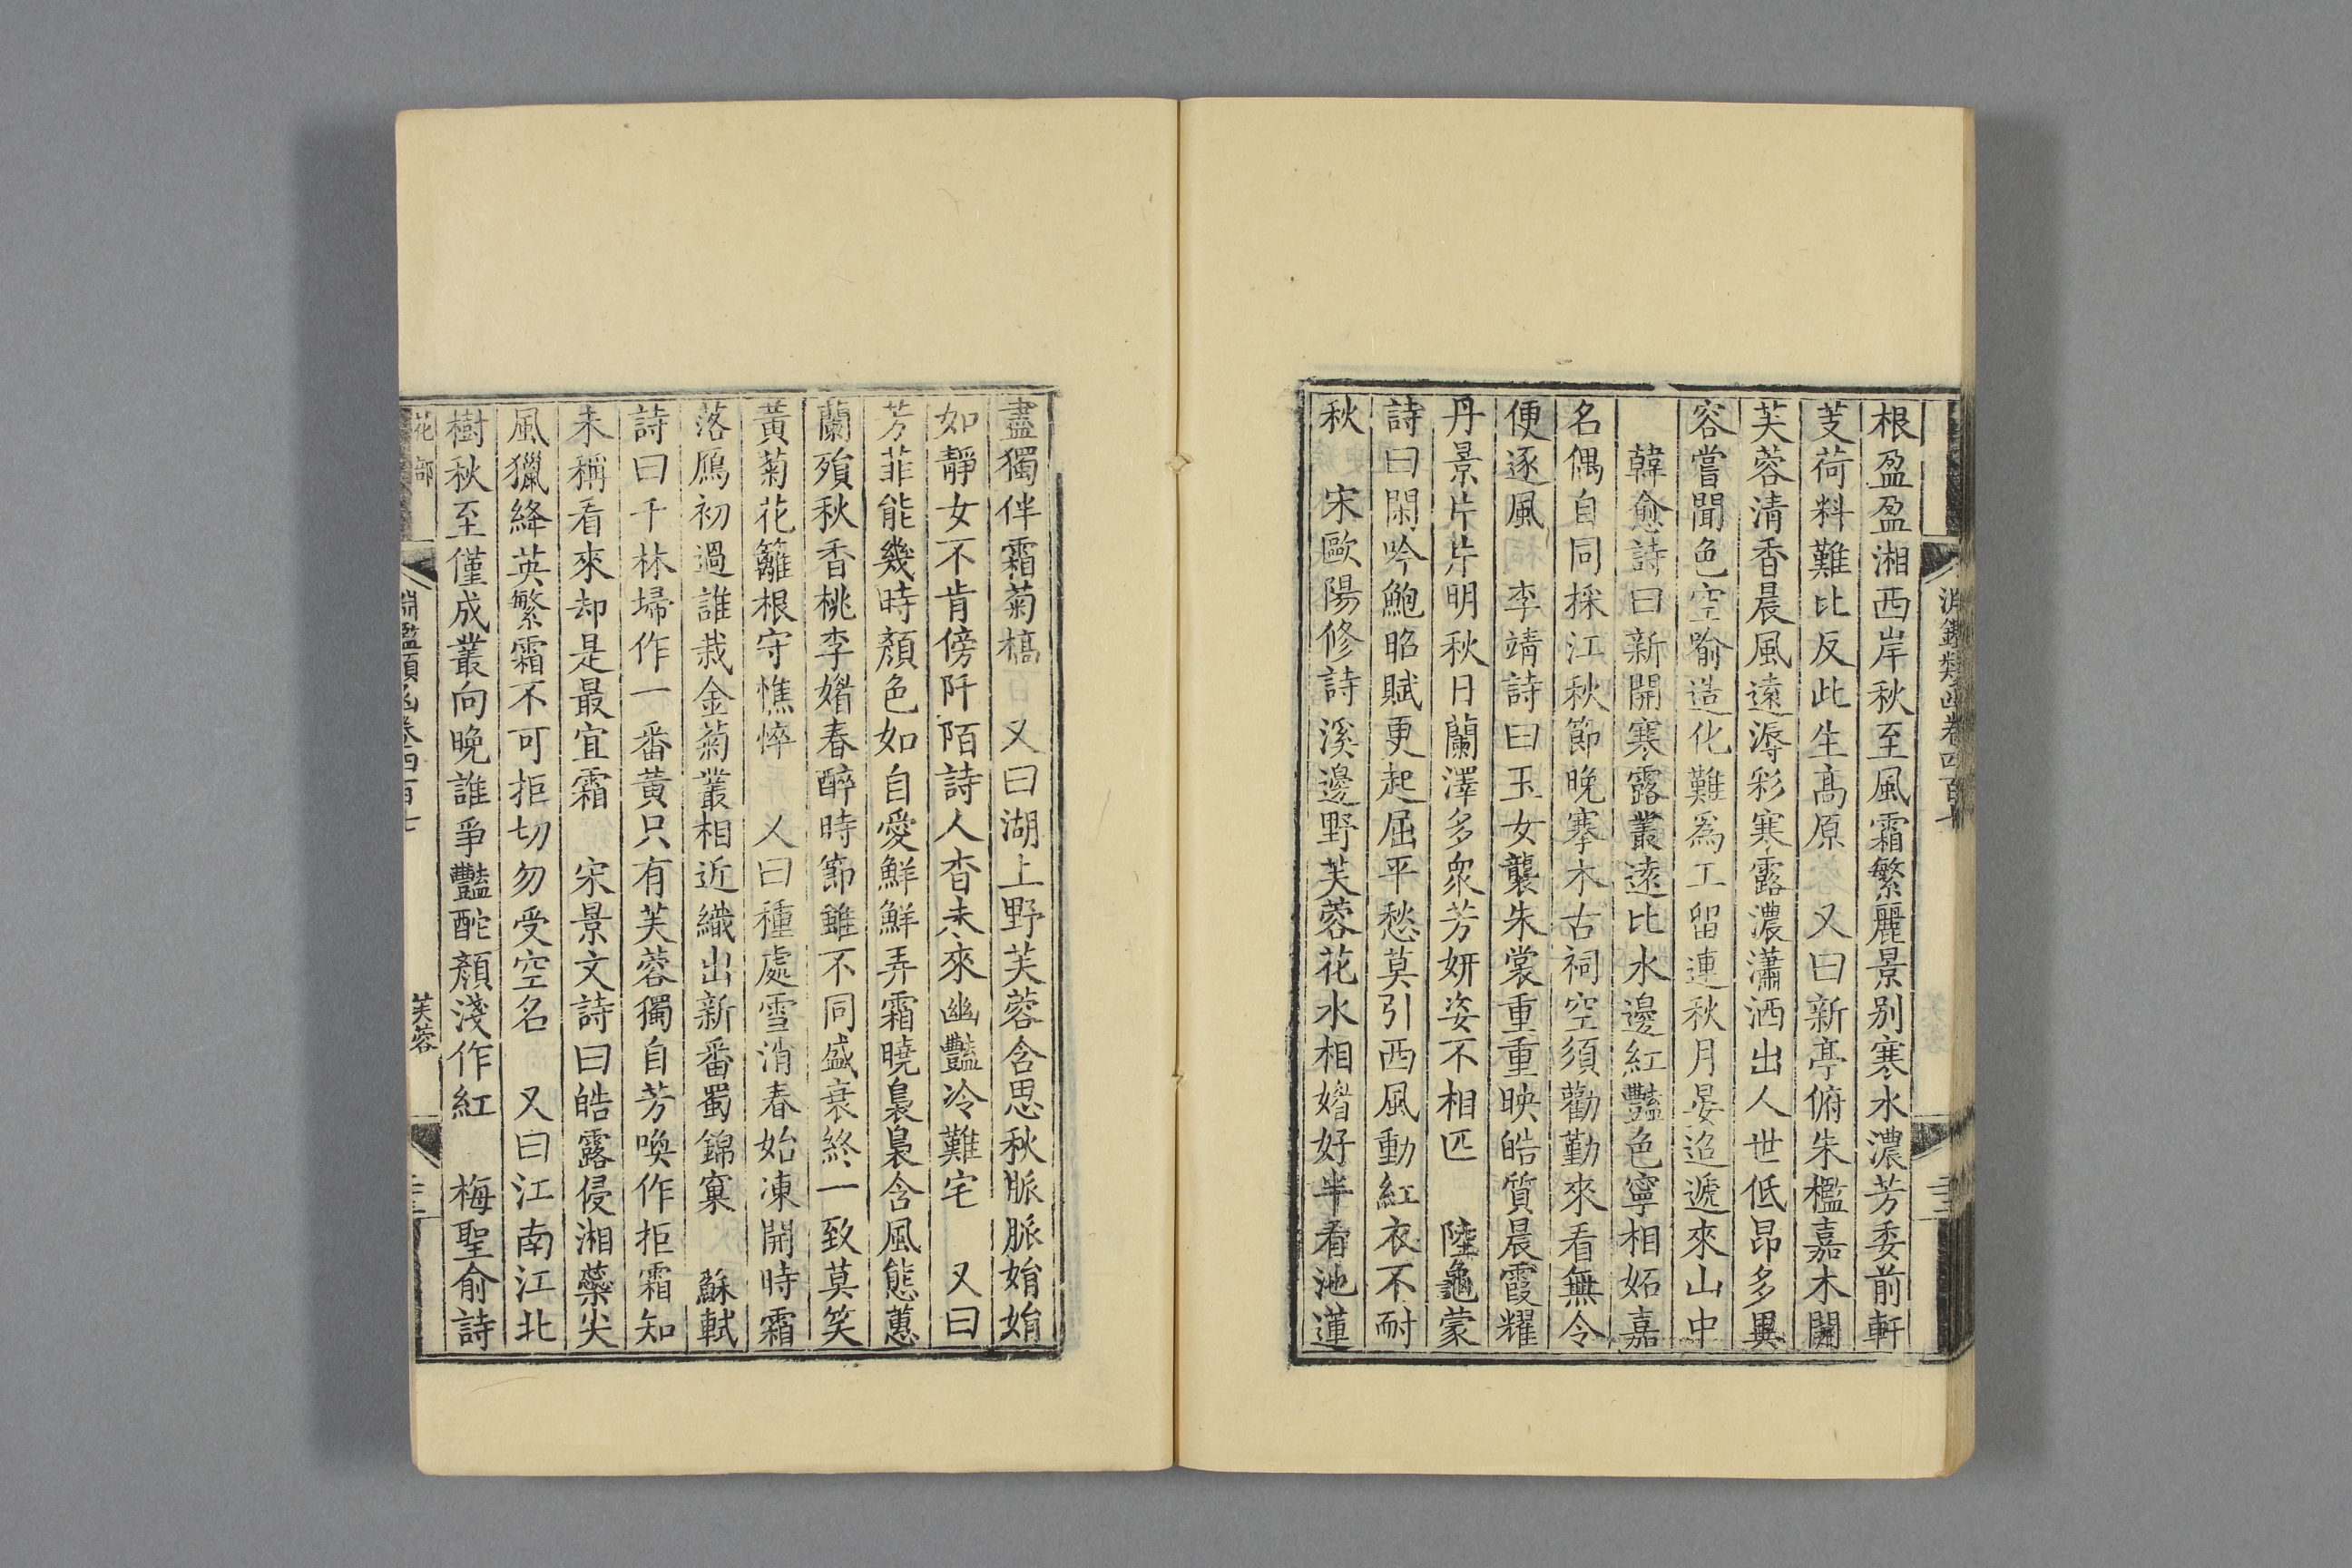 淵鑑類函卷四百七
根盈盈湘西岸秋至風霜繁麗景别寒水濃芳委前軒
芰荷料難比反此生高原 又曰新亭俯朱檻嘉木開
芙蓉清香晨風遠溽彩寒露濃瀟洒出人世低昂多異
容嘗聞色空喻造化難為工留連秋月晏迢遞來山中
韓愈詩曰新開寒露叢遠比水邊紅豔色寧相妬嘉
名偶自同採江秋節晚搴木古祠空須勸勤來看無令
便逐風 李靖詩曰玉女襲朱裳重重映皓質晨霞耀
丹景片片明秋日蘭澤多衆芳妍姿不相匹 陸龜蒙
詩曰閑吟鮑昭賦更起屈平愁莫引西風動紅衣不耐
秋 宋歐陽修詩溪邊野芙蓉花水相媘好半看池蓮
盡獨伴霜菊槁 又曰湖上野芙蓉含思秋脈脈娟娟
如靜女不肯傍阡陌詩人杳未來幽豔冷難宅 又曰
芳菲能幾時顏色如自愛鮮鮮弄霜曉裊裊含風態蕙
蘭殞秋香桃李媘春醉時節雖不同盛衰終一致莫笑
黃菊花籬根守憔悴 又曰種處雪消春始凍開時霜
落鴈初過誰栽金菊叢相近織出新番蜀錦窠 蘇軾
詩曰千林埽作一番黃只有芙蓉獨自芳喚作拒霜知
未稱看來却是最宜霜 宋景文詩曰皓露侵湘蘂尖
風獵絳英繁霜不可拒切勿受空名 又曰江南江北
樹秋至僅成叢向晚誰爭豔酡顏淺作紅 梅聖俞詩
花部 淵鑑類函卷四百七 芙蓉